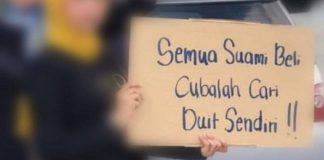 Semua Suami Beli
Cubalah Cari
Duit Sendiri !!